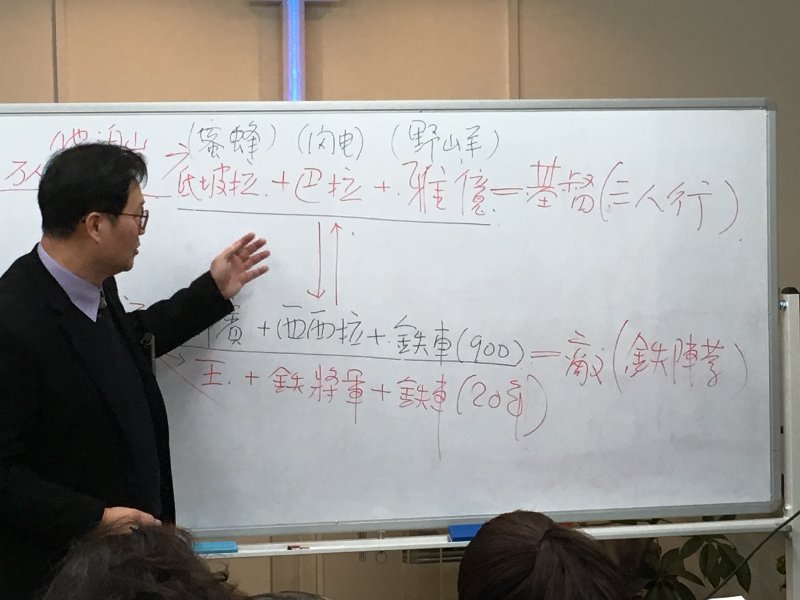 (蜜蜂) (闪电) (野山羊)
底坡拉 + 巴拉 + 雅億 = 基督(三人行)
賓 + 西西拉 + 鉄車(900) = 敵(鉄陣營)
王 + 鉄將軍 + 鉄車(20年)